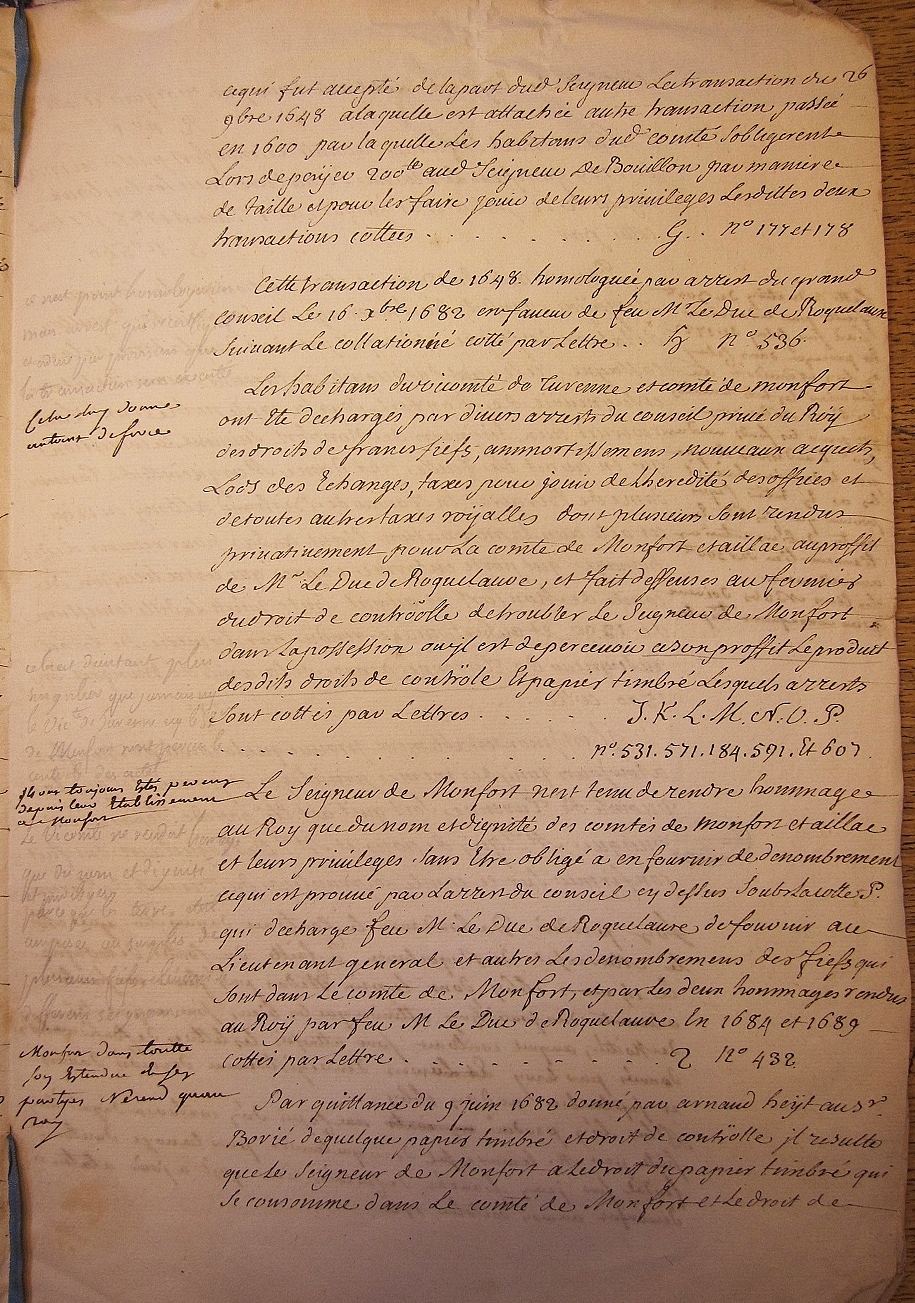 cequi fut accepté delapart dud. Seigneur La transaction du 26
9bre 1648 alaquelle est attachée autre transaction passée
en 1600 par laquelle Les habitans dud. comté Sobligerent
Lors depaÿer 200lt aud. Seigneur de Bouillon par maniere
de taille et pour les faire jouir de leurs privileges Lesdittes deux
transactions cottées . . . . . . . . . G. . nº 177 et 178
Cette transaction de 1648. homologuée par arrest du grand
conseil Le 16. xbre 1682 en faveur de feu Mr Le Duc de Roquelaure
Suivant Le collationné cotté par Lettre . . H nº 536.
Les habitans du vicomté de Turenne et comté de monfort
Celuy donne
autant de force
ont Eté dechargés par divers arrests du conseil privé du Roÿ
des droits de francs fiefs, ammortissemens, nouveaux acquets,
Lods des Echanges, taxes pour jouir de Lheredité des offices et
de toutes autres taxes roÿalles dont plusieurs Sont rendus
privativement pour La comté de Monfort et aillac au proffit
de Mr Le Duc de Roquelaure, et fait deffenses au fermier
du droit de contrôolle de troubler Le Seigneur de Monfort
dans La possession ou jl est de percevoir a son proffit Le produit
desdits droits de contrôle Et papier timbré Lesquels arrests
Sont cottés par Lettres . . . . . . J. K. L. M. N. O. P.
. . . . . . . nº. 531. 571. 184. 591. Et 607
jls ont toujours Estés perceus
depuis leur Etablissement
a Monfort
Le Seigneur de Monfort nest tenu de rendre hommage
au Roy que du nom et dignité des comtés de monfort et aillac
et leurs privileges Sans Etre obligé a en fournir de denombrement
cequi est prouvé par L'arrest du conseil cy dessus Soubs La cotte P.
qui decharge feu M. Le Duc de Roquelaure de fournir au
Lieutenant general et autres Les denombremens des fiefs qui
Sont dans Le comté de Monfort, et par Les deux hommages rendus
au Roÿ par feu M Le Duc de Roquelaure En 1684 et 1689
cottés par Lettre . . . . . . . . . Q nº 432.
Monfort dans toutte
son Estendue et ses
parties Nerend quau
roy
Par quittance du 9 juin 1682 donné par arnaud heÿt au Sr.
Borié de quelque papier timbré et droit de contrôlle jl resulte
que le Seigneur de Monfort a Le droit du papier timbré qui
Se consomme dans Le comté de Monfort et Le droit de